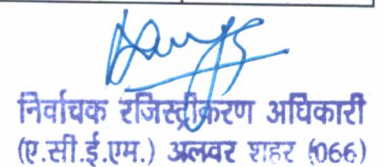 निर्वाचक रजिस्ट्रीकरण अधिकारी
(ए.सी.ई.एम.) अलवर शहर (066)